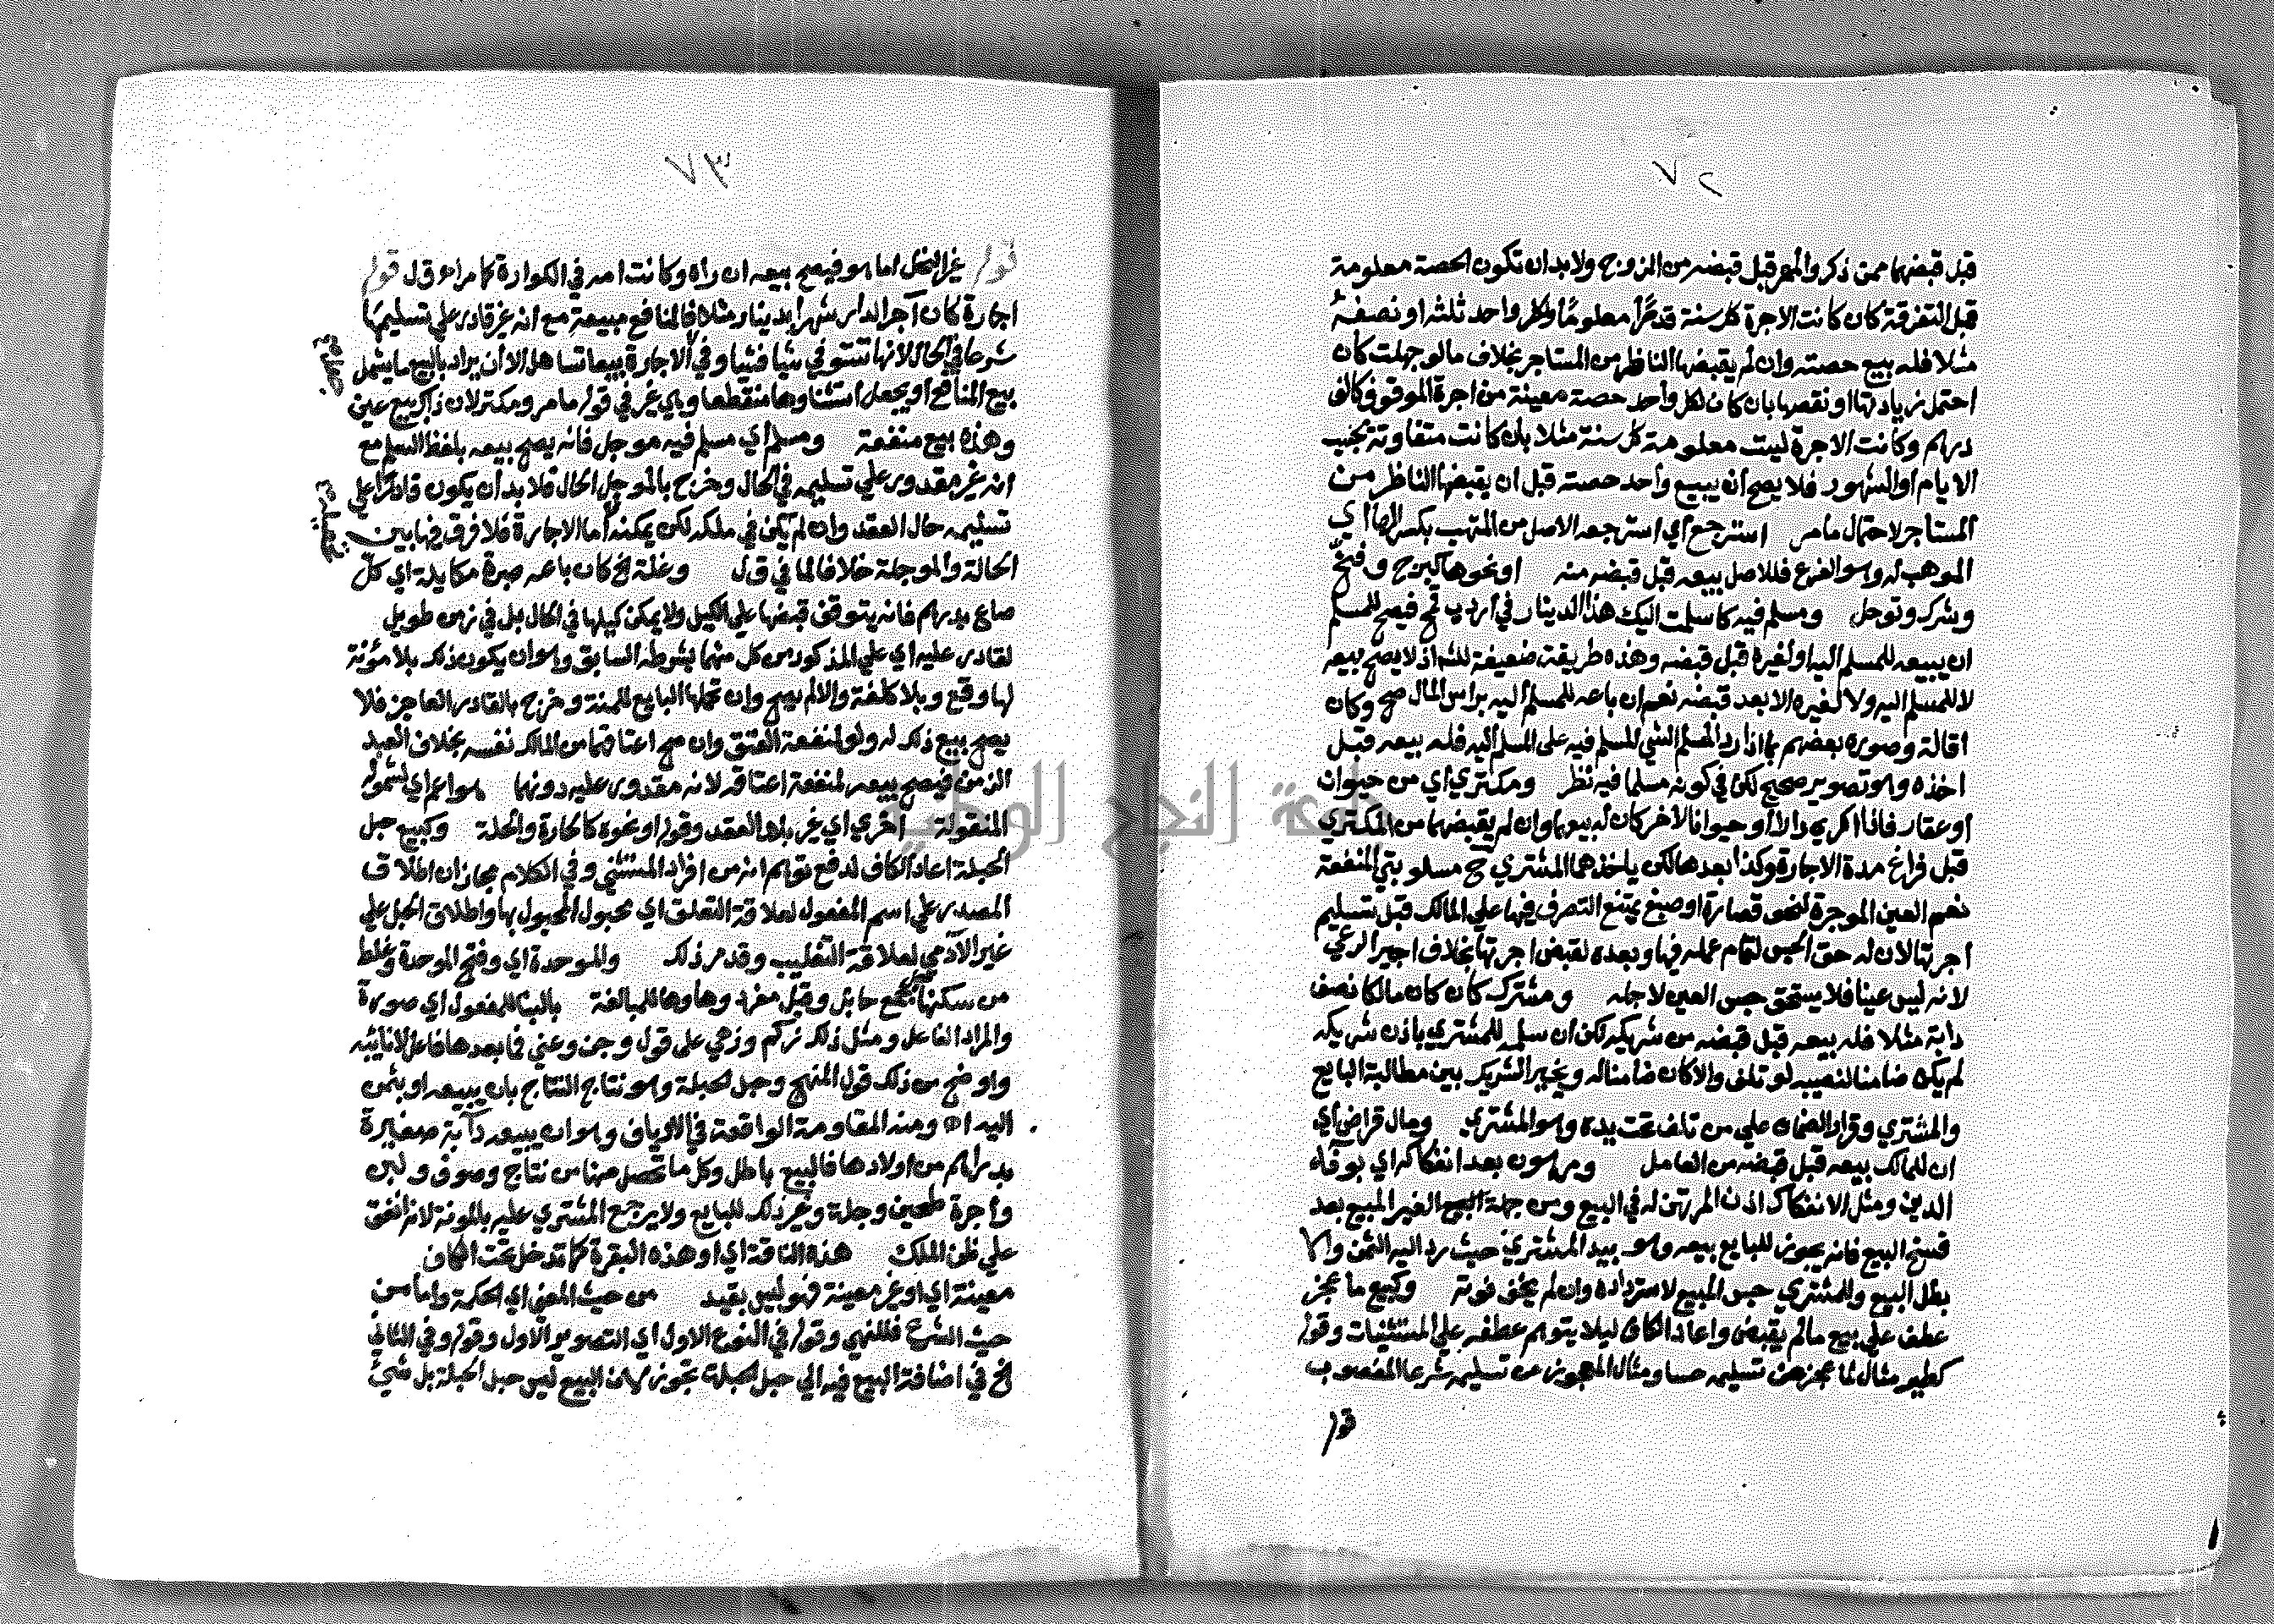 ٢٧
قبل قبضهما ممن ذكر والمهر قبل قبضه من الزوج ولا بد ان تكون الحصة معلومة
قبل التفرقة كان كانت الاجرة كل سنة قدرًا معلومًا ولكل واحد ثلثه او نصفه
مثلا فله بيع حصته وان لم يقبضها الناظر من المستاجر بخلاف ما لو جهلت كان
احتمل زيادتها او نقصها بان كان لكل واحد حصة معينة من اجرة الموقوف كالف
درهم وكانت الاجرة ليست معلومة كل سنة مثلا بان كانت متفاوتة بحسب
الايام او الشهور فلا يصح ان يبيع واحد حصته قبل ان يقبضها الناظر من
المستاجر لاحتمال ما مر استرجع اي استرجعه الاصل من المتهب بكسر الها اي
الموهب له وهو الفرع فللاصل بيعه قبل قبضه منه او نحوها كبرج وفخ
وشرك وتوحل ومسلم فيه كاسلمت اليك هذا الدينار في اردب قمح فيصح للمسلم
ان يبيعه للمسلم اليه او لغيره قبل قبضه وهذه طريقة ضعيفة اذ لا يصح بيعه
لا للمسلم اليه ولا لغيره الا بعد قبضه نعم ان باعه للمسلم اليه براس المال صح وكان
اقالة وصوره بعضهم بما اذا رد المسلم الشي المسلم فيه على المسلم اليه فله بيعه قبل
اخذه وهو تصوير صحيح لكن في كونه مسلما فيه نظر ومكتري اي من حيوان
او عقار فاذا اكري دارا او حيوانا لاخر كان له بيعهما وان لم يقبضهما من المكتري
قبل فراغ مدة الاجارة وكذا بعدها لكن ياخذهما المشتري ح مسلوبتي المنفعة
نعم العين الموجرة لنحو قصارة او صبغ يمتنع التصرف فيها على المالك قبل تسليم
اجرتها لان له حق الحبس لتمام عمله فيها وبعده لقبض اجرتها بخلاف اجير الرعي
لانه ليس عينا فلا يستحق حبس العين لاجله ومشترك كان كان مالكا نصف
دابة مثلا فله بيعه قبل قبضه من شريكه لكن ان سلمه للمشتري باذن شريكه
لم يكن ضامنا لنصيبه لو تلف والا كان ضامنا له ويخير الشريك بين مطالبة البايع
والمشتري وقرار الضمان على من تلف تحت يده وهو المشتري ومال قراض اي
ان للمالك بيعه قبل قبضه من العامل ومرهون بعد انفكاكه اي بوفاء
الدين ومثل الانفكاك اذن المرتهن له في البيع ومن جملة الغير المبيع بعد
فسخ البيع فانه يجوز للبايع بيعه وهو بيد المشتري حيث رد اليه الثمن والا
بطل البيع وللمشتري حبس المبيع لاسترداده وان لم يخف فوته وكبيع ما عجز
عطف على بيع ما لم يقبض واعاد الكاف ليلا يتوهم عطفه على المستثنيات وقوله
كطير مثال لما عجز عن تسليمه حسا ومثال المعجوز عن تسليمه شرعا المغصوب
قوله
٣٧
قوله غير النحل اما هو فيصح بيعه ان راه وكانت امه في الكوارة كما مر قوله
اجارة كان آجر الدار شهرا بدينار مثلا فالمنافع مبيعة مع انه غير قادر على تسليمها
شرعا في الحال لانها تستوفي شيا فشيا وفي الاجارة بيعا تساهل الا ان يراد بالبيع ما يشمل
بيع المنافع او يجعل استثناوها منقطعا وياي غير في قوله ما مر ومكتر لان ذاك بيع عين
وهذه بيع منفعة ومسلم اي مسلم فيه موجل فانه يصح بيعه بلفظ السلم مع
انه غير مقدور على تسليمه في الحال وخرج بالموجل الحال فلا بد ان يكون قادرا على
تسليمه حال العقد وان لم يكن في ملكه لكن يمكنه اما الاجارة فلا فرق فيها بين
الحالة والموجلة خلافا لما في ق ل وغلة الخ كان باعه صبرة مكايلة اي كل
صاع بدرهم فانه يتوقف قبضها على الكيل ولا يمكن كيلها في الحال بل في زمن طويل
لقادر عليه اي على المذكور من كل منهما بشرطه السابق وهو ان يكون ذلك بلا مؤنة
لها وقع وبلا كلفة والا لم يصح وان تحملها البايع للمنة وخرج بالقادر العاجز فلا
يصح بيع ذلك له ولو لمنفعة العتق وان صح اعتاقهما من المالك نفسه بخلاف العبد
الزمن فيصح بيعه لمنفعة اعتاقه لانه مقدور عليه دونهما هو اعم اي لشموله
المنقولة اخري اي غير بلد العقد وقوله او نحوه كالحارة والمحلة وكبيع حبل
الحبلة اعاد الكاف لدفع توهم انه من افراد المستثني وفي الكلام مجازان اطلاق
المصدر على اسم المفعول لعلاقة التعلق اي محبول المحبول بها واطلاق الحبل على
غير الآدمي لعلاقة التغليب وقد مر ذلك والموحدة اي وفتح الموحدة وغلط
من سكنها جمع حابل وقيل مفرد وهاوها للمبالغة بالبنا للمفعول اي صورة
والمراد الفاعل ومثل ذلك زكم وزهي على قول وجن وعني فما بعدها فاعل لا نايبه
واوضح من ذلك قول المنهج وحبل الحبلة وهو نتاج النتاج بان يبيعه او بثمن
اليه اه ومنه المقاومة الواقعة في الارياف وهو ان يبيعه دآبة صغيرة
بدراهم من اولادها فالبيع باطل وكل ما تحصل منها من نتاج وصوف ولبن
واجرة طحين وجلة وغير ذلك للبايع ولا يرجع المشتري عليه بالمونة لانه انفق
على ظن الملك هذه الناقة اي او هذه البقرة كما تدخل تحت الكاف
معينة اي او غير معينة فهو ليس بقيد من حيث المعني اي الحكمة واما من
حيث الشرع فللنهي وقوله في النوع الاول اي التصوير الاول وقوله وفي الثاني
الخ في اضافة البيع فيه الي حبل الحبلة تجوز لان البيع ليس حبل الحبلة بل شيئ
مطبعة النجاح الوطنية